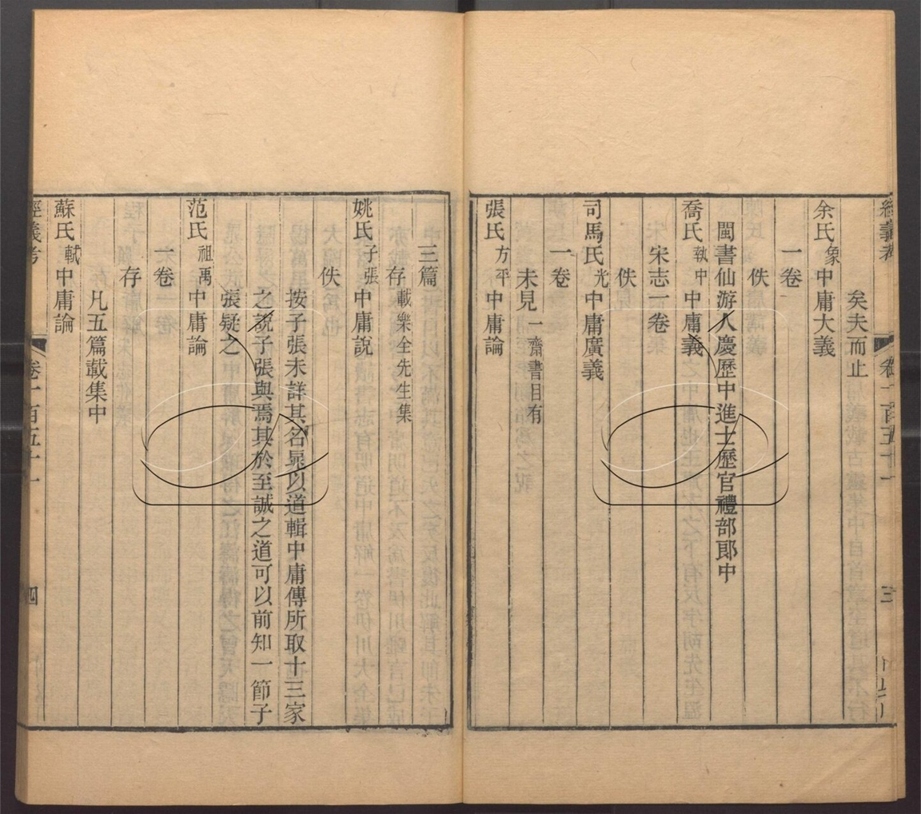 矣夫而止
余氏象中庸大義
一卷
佚
閩書仙游人慶歷中進士歷官禮部郎中
喬氏執中中庸義
宋志一卷
佚
司馬氏光中庸廣義
一卷
未見一齋書目有
張氏方平中庸論
三篇
存載樂全先生集
姚氏子張中庸說
佚
按子張未詳其名晁以道輯中庸傳所取十三家
之說子張與焉其於至誠之道可以前知一節子
張疑之
范氏祖禹中庸論
一卷
存
凡五篇載集中
蘇氏軾中庸論
經義考 卷一百五十一 四